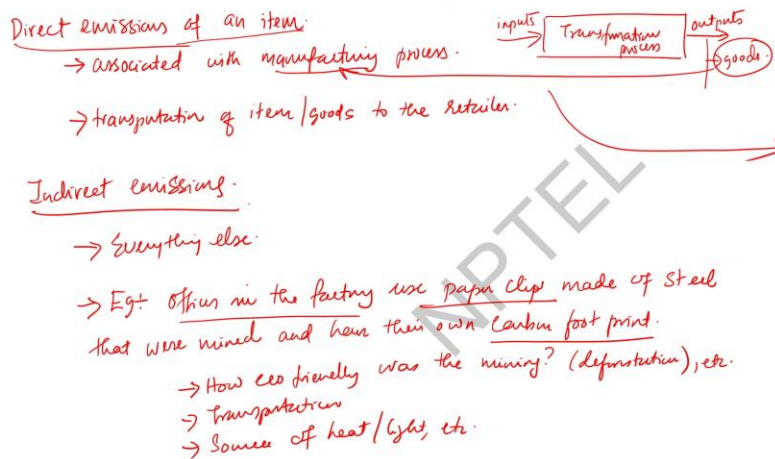 Direct emissions of an item.
inputs
Transformation
process
outputs
→ goods.
→ associated with manufacturing process.
→ transportation of item/goods to the retailer.
Indirect emissions.
→ Everything else.
→ Eg:- offices in the factory use paper clips made of steel
that were mined and have their own carbon foot print.
→ How eco friendly was the mining? (deforestation), etc.
→ Transportation
→ Source of heat/light, etc.
NPTEL